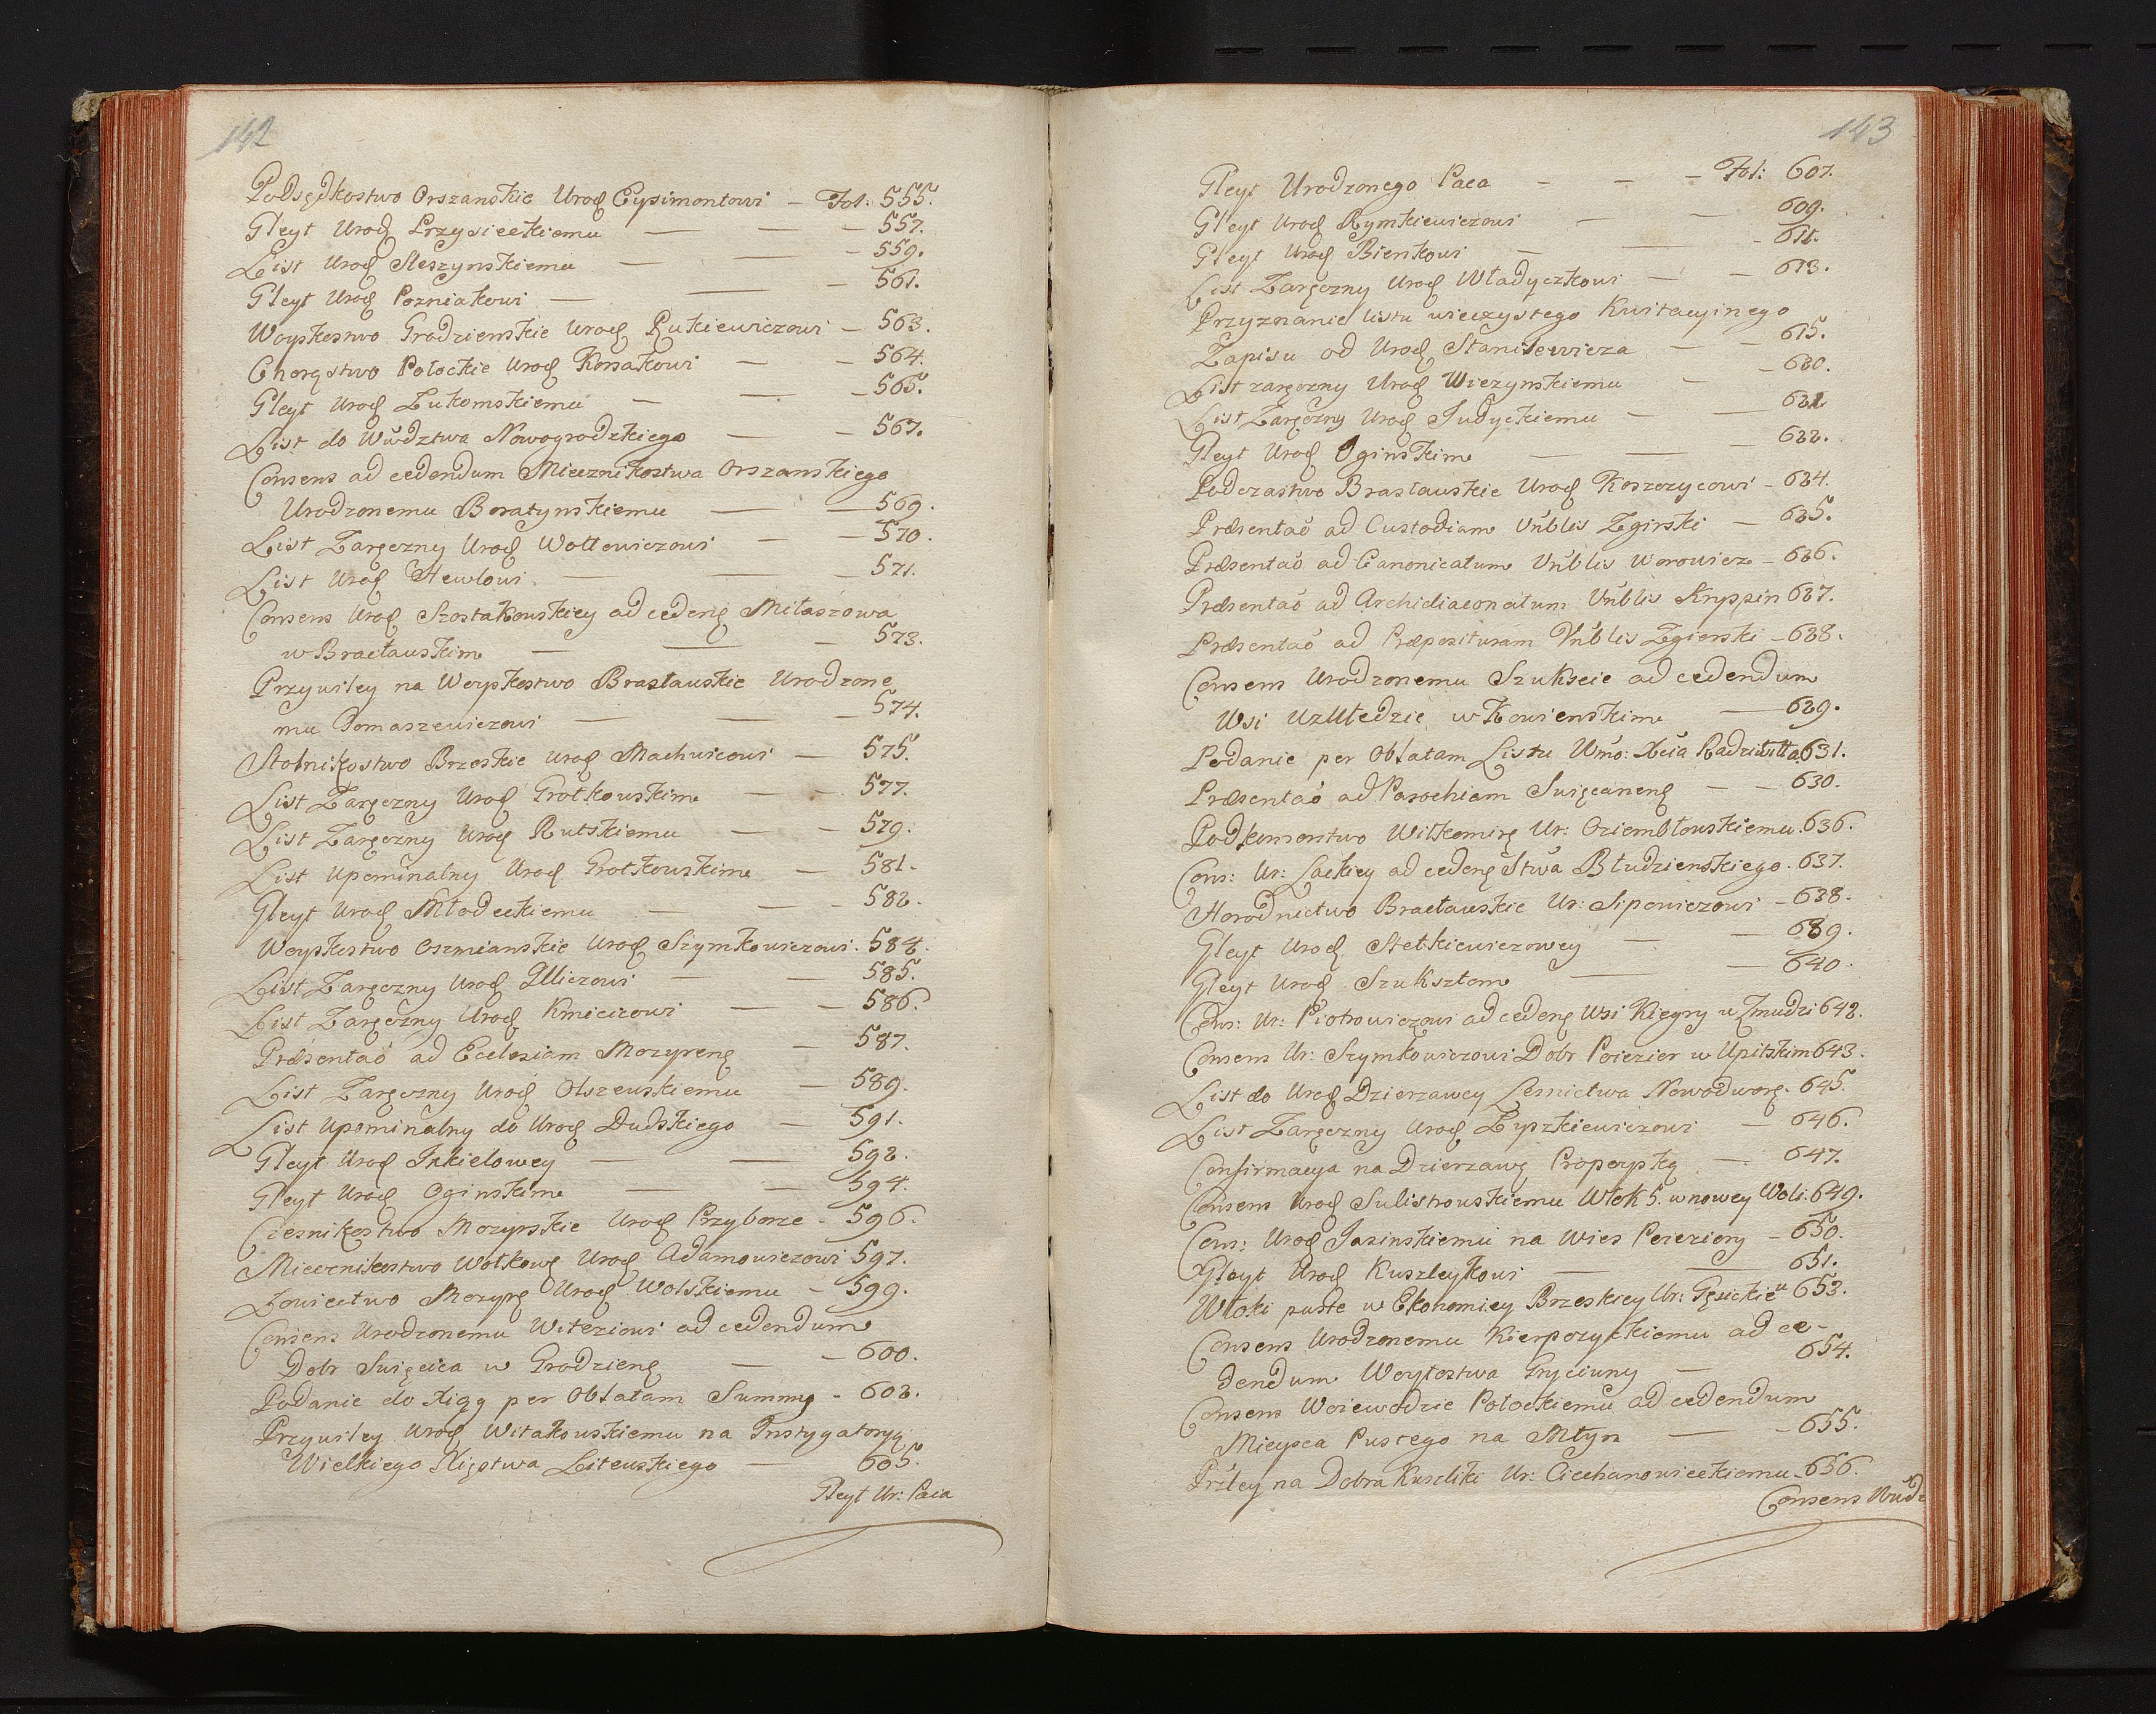 142
Podsędkostwo Orszanskie Urod Eysimontowi — Fol: 555.
Gleyt Urod Przysieckiemu — — — 557.
List Urod Sleszynskiemu — — — 559.
Gleyt Urod Pozniakowi — — — 561.
Woyskostwo Grodzienskie Urod Rukiewiczowi — 563.
Chorąstwo Połockie Urod Korsakowi — — 564.
Gleyt Urod Łukomskiemu — — — 565.
List do Wúdztwa Nowogrodzkiego — — 567.
Consens ad cedendum Miecznikostwa Orszanskiego
Urodzonemu Boratynskiemu — — 569.
List Zaręczny Urod Wołłowiczowi — — 570.
List Urod Hewlowi. — — — 571.
Consens Urod Szostakowskiey ad cedeng Miłaszowa
w Bracławskim — — — 573.
Przywiley na Woyskostwo Brasławskie Urodzone
mu Tomaszewiczowi — — — 574.
Stolnikostwo Brzeskie Urod Machwicowi — 575.
List Zaręczny Urod Grotkowskim — — 577.
List Zaręczny Urod Rutskiemu — — 579.
List Upominalny Urod Grotkowskim — 581.
Gleyt Urod Młodeckiemu — — — 582.
Woyskostwo Oszmianskie Urod Szymkowiczowi. 584.
List Zaręczny Urod Illiczowi — — 585.
List Zaręczny Urod Kmicicowi — — 586.
Præsentaó ad Ecclesiam Mozyreng — 587.
List Zaręczny Urod Olszewskiemu — 589.
List Upominalny do Urod Dudskiego — 591.
Gleyt Urod Inkielowey — — 592.
Gleyt Urod Oginskim — — 594.
Czesnikostwo Mozyrskie Urod Przyborze - 596.
Miecznikostwo Wołkowę Urod Adamowiczowi 597.
Łowiectwo Mozyrę Urod Wolskiemu — 599.
Consens Urodzonemu Witeziowi ad cedendum
Dobr Swięcica w Grodzieng — — 600.
Podanie do Xiąg per Oblatam Summę - 602.
Przywiley Urod Witakowskiemu na Instygatoryą
Wielkiego Xięstwa Litewskiego — 605.
Gleyt Ur: Paca
143
Gleyt Urodzonego Paca — — — Fol: 607.
Gleyt Urod Rymkiewiczowi — — 609.
Gleyt Urod Bienkowi — — - 611.
List Zaręczny Urod Władyczkowi — — 613.
Przyznanie listu wieczystego Kwitacyinego
Zapisu od Urod Stanilewicza — — 615.
List zaręczny Urod Wiczynskiemu — — 620.
List Zaręczny Urod Judyckiemu — — 621
Gleyt Urod Oginskim — — — 622.
Podczastwo Brasławskie Urod Koszczycowi - 624.
Præsentaó ad Custodiam Vúblis Zgirski — 625.
Præsentaó ad Canonicatum Vúblis Worowicz - 626.
Præsentaó ad Archidiaconatum Vúblis Kryspin 627.
Præsentaó ad Præposituram Vúblis Zgierski - 628.
Consens Urodzonemu Szukscie ad cedendum
Wsi Uzułedzie w Kowienskim — 629.
Podanie per Oblatam Listu Wmo: Xcia Radziwiłła 631.
Præsentaó ad Parochiam Swięcaneng — — 630.
Podkomorstwo Wiłkomirę Ur: Oziembłowskiemu. 636.
Cons: Ur: Lackiey ad cedeng Stwa Błudzienskiego. 637.
Horodnictwo Bracławskie Ur: Siponiczowi - 638.
Gleyt Urod. Stetkiewiczowey — — 639.
Gleyt Urod Szuksztom — — 640.
Cons: Ur: Piotrowiczowi ad cedeng Wsi Kiegry w Zmudzi 642.
Consens Ur: Szymkowiczowi Dobr Poiezier w Upitskim 643.
List do Urod Dzierzawcy Lesnictwa Nowodworg. 645.
List Zaręczny Urod Łyszkiewiczowi — 646.
Confirmacya na Dzierzawę Properyską — 647.
Consens Urod Sulistrowskiemu Włok 5. w nowey Woli. 649.
Cons: Urod Jasinskiemu na Wies Poieziory - 650.
Gleyt Urod Kuszleykowi — — 651.
Włoki puste w Ekonomiey Brzeskiey Ur: Gęsickieu 653.
Consens Urodzonemu Kierpczyckiemu ad ce-
dendum Woytostwa Gryciuny — 654.
Consens Woiewodzie Połockiemu ad cedendum
Mieysca Pustego na Młyn — - 655.
Przley na Dobra Kuszliki Ur: Ciechanowieckiemu - 656.
Consens Wúdz